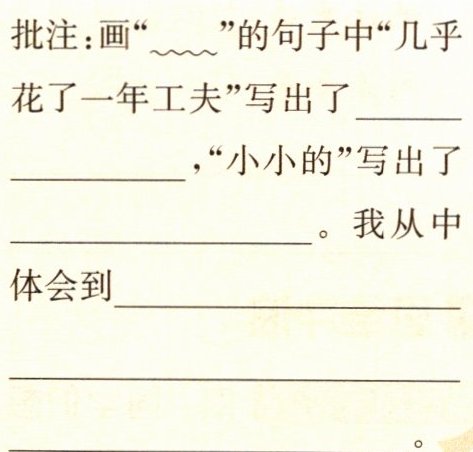 批注:画“﹏﹏”的句子中“几乎
花了一年工夫”写出了______
__________,“小小的”写出了
_________________。我从中
体会到____________________
__________________________
_______________________。